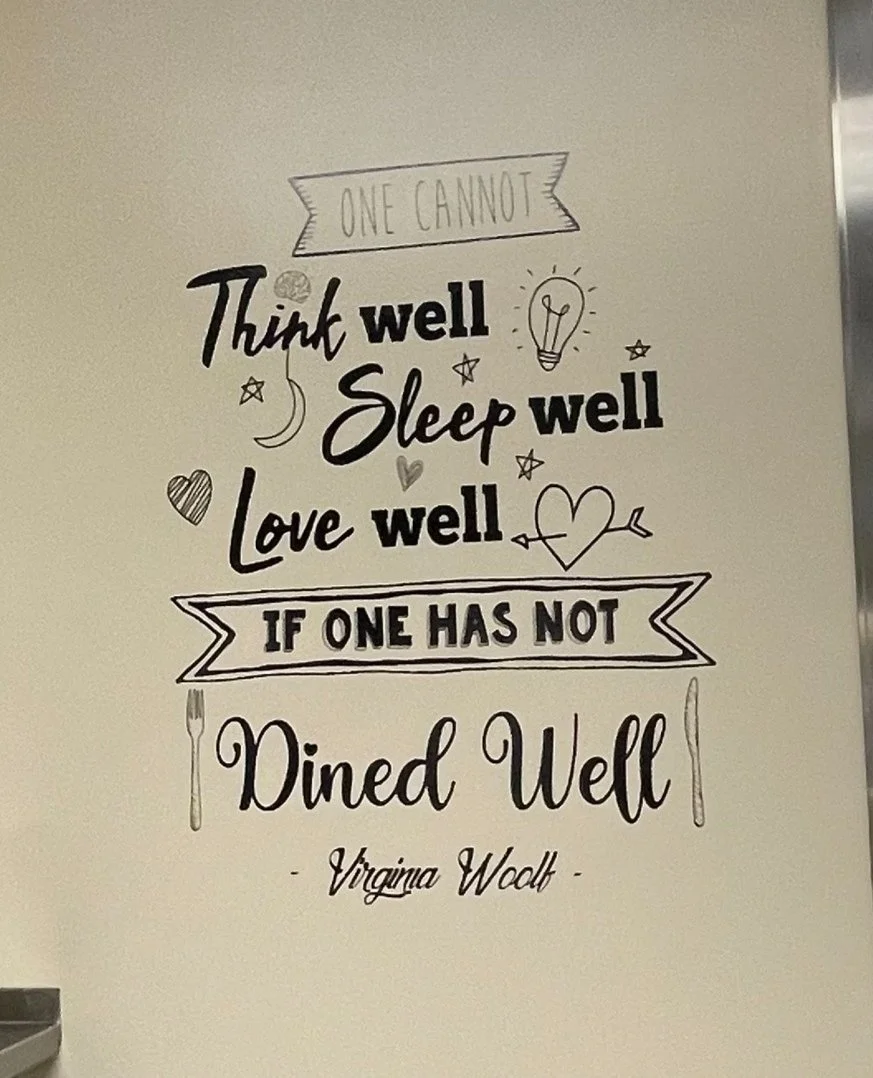 ONE CANNOT
Think well
Sleep well
Love well
IF ONE HAS NOT
Dined Well
- Virginia Woolf -